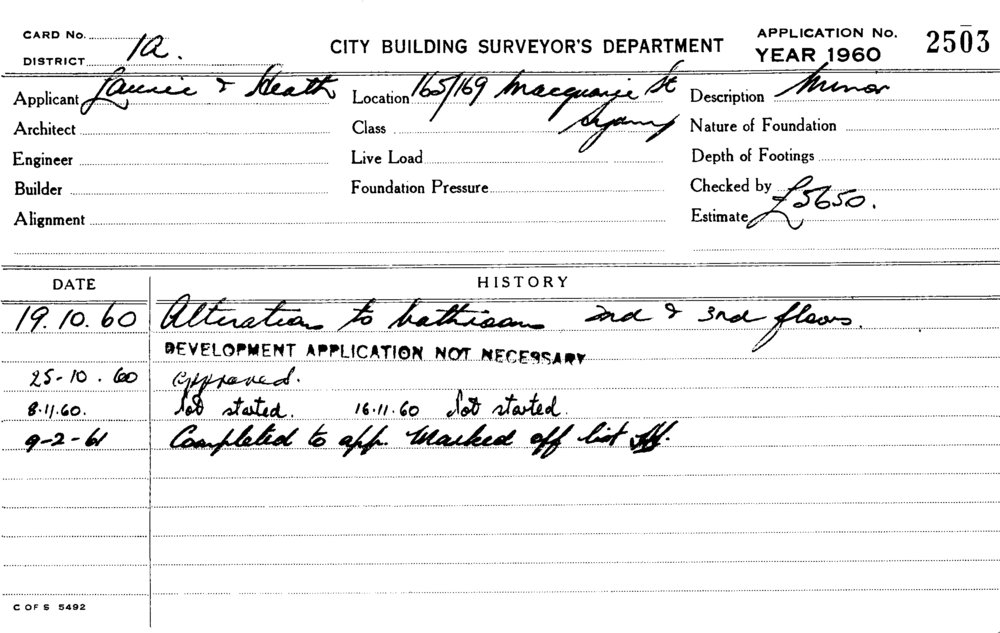 CARD No.
CITY BUILDING SURVEYOR'S DEPARTMENT
APPLICATION No. 2503
DISTRICT 1A.
YEAR 1960
Applicant Laurie & Heath Location 165/169 Macquarie St Description Minor
Architect Class Sydney Nature of Foundation
Engineer Live Load Depth of Footings
Builder Foundation Pressure Checked by
Alignment Estimate £5650.
DATE HISTORY
19.10.60 Alterations to bathrooms 2nd & 3rd floors.
DEVELOPMENT APPLICATION NOT NECESSARY
25-10.60 approved.
8.11.60. Not started. 16.11.60 Not started.
9-2-61 Completed to app. Marked off list
C OF S 5492